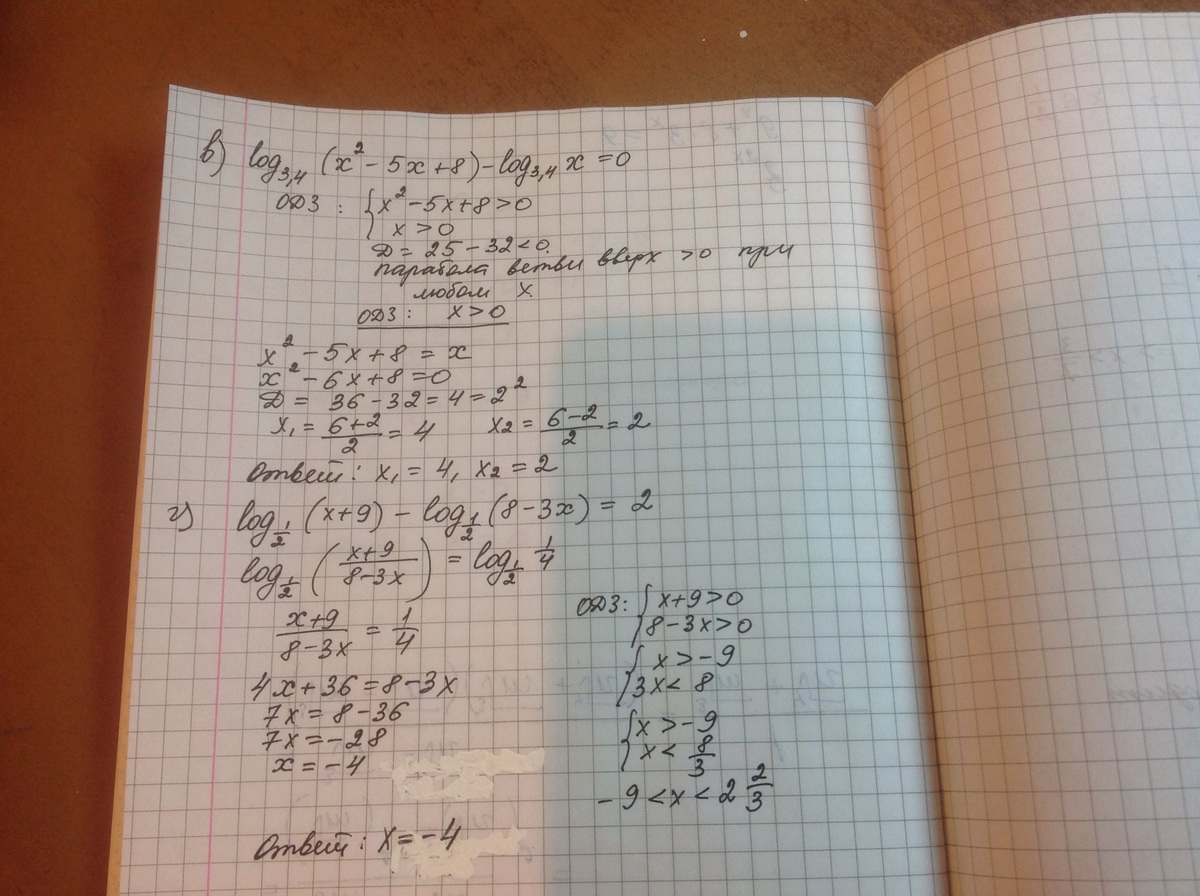 в) log₃,₄ (x² - 5x + 8) - log₃,₄ x = 0
ОДЗ : { x² - 5x + 8 > 0
x > 0
Д = 25 - 32 < 0.
парабола ветви вверх > 0 при
любом x.
ОДЗ : x > 0
x² - 5x + 8 = x
x² - 6x + 8 = 0
Д = 36 - 32 = 4 = 2²
x₁ = (6+2)/2 = 4 x₂ = (6-2)/2 = 2
Ответ : x₁ = 4, x₂ = 2
г) log_(1/2) (x+9) - log_(1/2) (8-3x) = 2
log_(1/2) ((x+9)/(8-3x)) = log_(1/2) 1/4
(x+9)/(8-3x) = 1/4
4x + 36 = 8 - 3x
7x = 8 - 36
7x = -28
x = -4
ОДЗ : { x+9 > 0
8 - 3x > 0
{ x > -9
3x < 8
{ x > -9
x < 8/3
-9 < x < 2 2/3
Ответ : x = -4